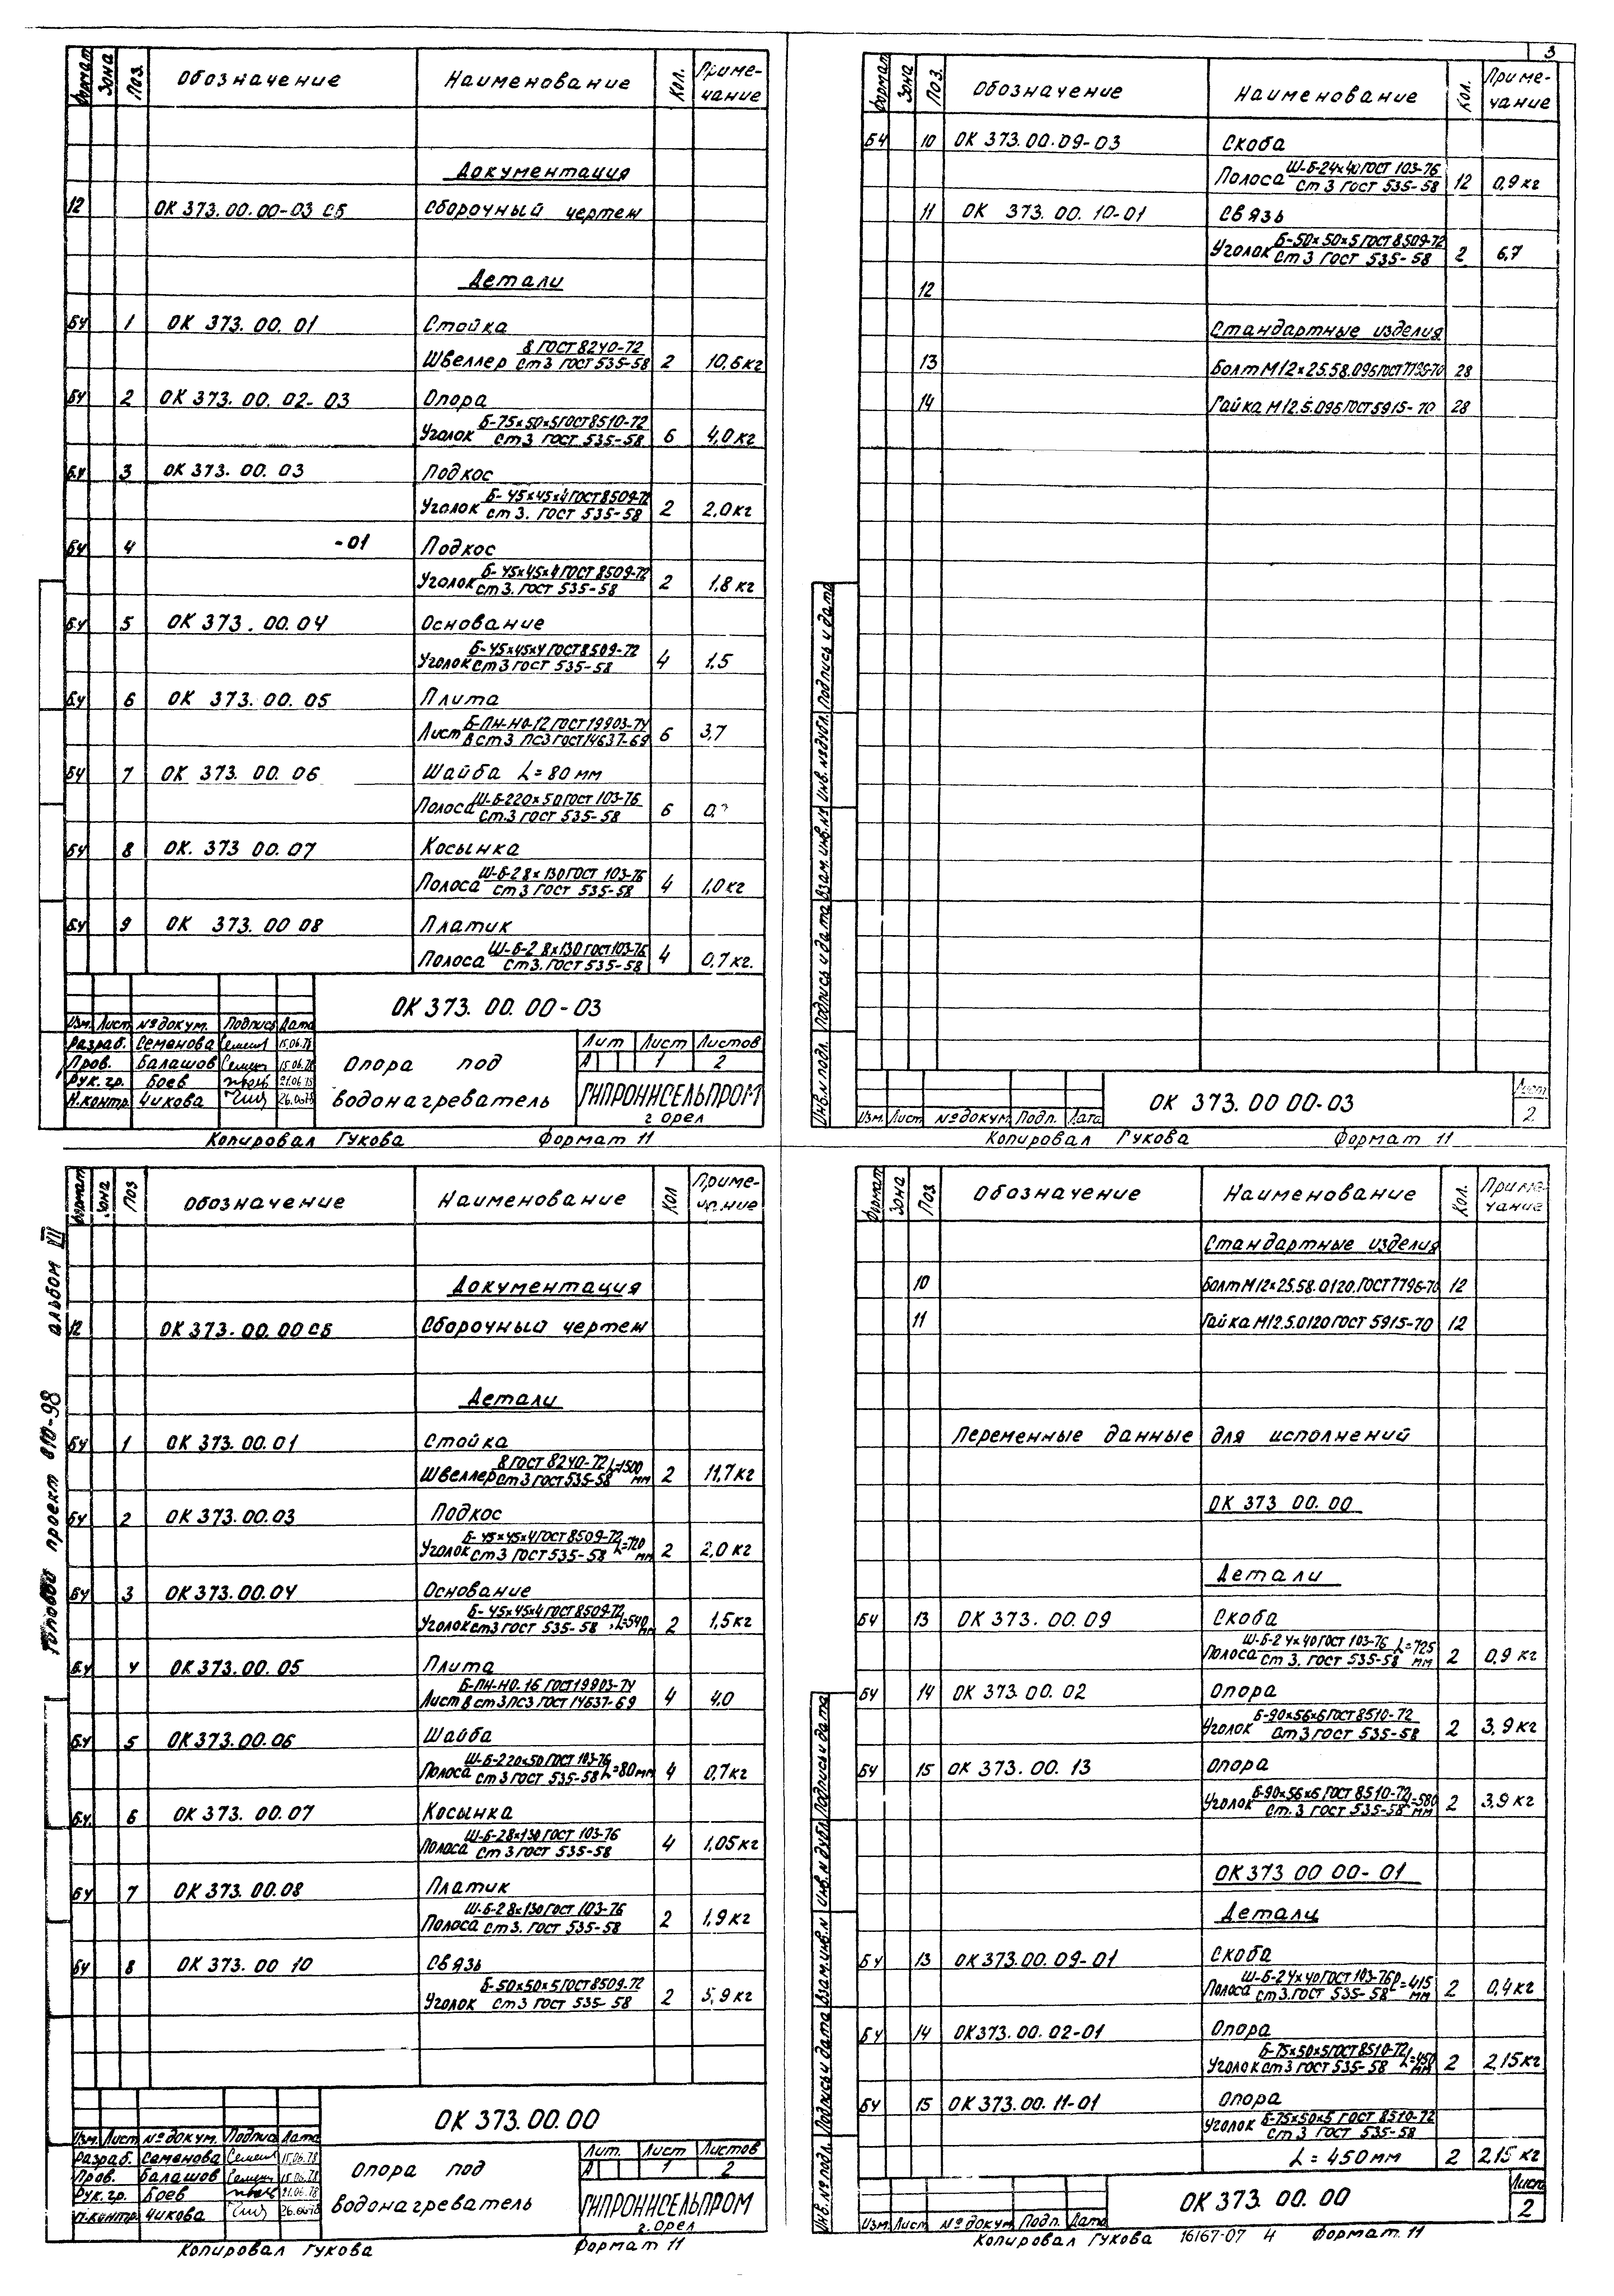 Формат Зона Поз. Обозначение Наименование Кол. Приме-
чание
Документация
12 ОК 373.00.00-03 СБ Сборочный чертеж
Детали
БЧ 1 ОК 373.00.01 Стойка
Швеллер 8 ГОСТ 8240-72
Ст3 ГОСТ 535-58 2 10,6 кг
БЧ 2 ОК 373.00.02-03 Опора
Уголок Б-75х50х5 ГОСТ 8510-72
Ст3 ГОСТ 535-58 6 4,0 кг
БЧ 3 ОК 373.00.03 Подкос
Уголок Б-45х45х4 ГОСТ 8509-72
Ст3. ГОСТ 535-58 2 2,0 кг
БЧ 4 -01 Подкос
Уголок Б-45х45х4 ГОСТ 8509-72
Ст3. ГОСТ 535-58 2 1,8 кг
БЧ 5 ОК 373.00.04 Основание
Уголок Б-45х45х4 ГОСТ 8509-72
Ст3 ГОСТ 535-58 4 1,5
БЧ 6 ОК 373.00.05 Плита
Лист Б-ПН-НО-12 ГОСТ 19903-74
В ст3 пс3 ГОСТ 14637-69 6 3,7
БЧ 7 ОК 373.00.06 Шайба L=80 мм
Полоса Ш-Б-220х50 ГОСТ 103-76
Ст.3 ГОСТ 535-58 6
БЧ 8 ОК. 373 00.07 Косынка
Полоса Ш-Б-2 8х130 ГОСТ 103-76
Ст3 ГОСТ 535-58 4 1,0 кг
БЧ 9 ОК 373.00 08 Платик
Полоса Ш-Б-2 8х130 ГОСТ 103-76
Ст3. ГОСТ 535-58 4 0,7 кг.
ОК 373.00.00-03
Изм. Лист № докум. Подпись Дата
Разраб. Семенова 15.06.78
Пров. Балашов 15.06.78
Рук. гр. Боев 21.06.78
Н.контр. Чикова 26.06.78
Опора под
водонагреватель
Лит Лист Листов
А 1 2
ГИПРОНИСЕЛЬПРОМ
г Орел
Копировал Гукова Формат 11
3
Формат Зона Поз. Обозначение Наименование Кол. Приме-
чание
БЧ 10 ОК 373.00.09-03 Скоба
Полоса Ш-Б-24х40 ГОСТ 103-76
Ст 3 ГОСТ 535-58 12 0,9 кг
11 ОК 373.00.10-01 Связь
Уголок Б-50х50х5 ГОСТ 8509-72
Ст 3 ГОСТ 535-58 2 6,7
12
Стандартные изделия
13 Болт М12х25.58.096 ГОСТ 7796-70 28
14 Гайка М12.5.096 ГОСТ 5915-70 28
Инв.№ подл. Подпись и дата Взам. инв.№ Инв. № дубл. Подпись и дата
Изм. Лист № докум. Подп. Дата
ОК 373.00 00-03
Лист
2
Копировал Гукова Формат 11
Типовой проект 810-98 альбом VII
Формат Зона Поз Обозначение Наименование Кол Приме-
чание
Документация
12 ОК 373.00.00 СБ Сборочный чертеж
Детали
БЧ 1 ОК 373.00.01 Стойка
Швеллер 8 ГОСТ 8240-72
Ст 3 ГОСТ 535-58 L=1500 мм 2 11,7 кг
БЧ 2 ОК 373.00.03 Подкос
Уголок Б-45х45х4 ГОСТ 8509-72
Ст 3 ГОСТ 535-58 L=720 мм 2 2,0 кг
БЧ 3 ОК 373.00.04 Основание
Уголок Б-45х45х4 ГОСТ 8509-72
Ст3 ГОСТ 535-58 L=540 мм 2 1,5 кг
БЧ 4 ОК 373.00.05 Плита
Лист Б-ПН-НО.16 ГОСТ 19903-74
В ст 3 пс3 ГОСТ 14637-69 4 4,0
БЧ 5 ОК 373.00.06 Шайба
Полоса Ш-Б-220х50 ГОСТ 103-76
Ст 3 ГОСТ 535-58 L=80 мм 4 0,7 кг
БЧ 6 ОК 373.00.07 Косынка
Полоса Ш-Б-2 8х130 ГОСТ 103-76
Ст 3 ГОСТ 535-58 4 1,05 кг
БЧ 7 ОК 373.00.08 Платик
Полоса Ш-Б-2 8х130 ГОСТ 103-76
Ст 3. ГОСТ 535-58 2 1,9 кг
БЧ 8 ОК 373.00 10 Связь
Уголок Б-50х50х5 ГОСТ 8509-72
Ст 3 ГОСТ 535-58 2 5,9 кг
ОК 373.00.00
Изм. Лист № докум. Подпись Дата
Разраб. Семенова 15.06.78
Пров. Балашов 15.06.78
Рук. гр. Боев 21.06.78
Н.контр Чикова 26.06.78
Опора под
водонагреватель
Лит. Лист Листов
А 1 2
ГИПРОНИСЕЛЬПРОМ
г. Орел
Копировал Гукова Формат 11
Формат Зона Поз. Обозначение Наименование Кол. Приме-
чание
Стандартные изделия
10 Болт М12х25.58.0120. ГОСТ 7796-70 12
11 Гайка М12.5.0120 ГОСТ 5915-70 12
Переменные данные для исполнений
ОК 373 00.00
Детали
БЧ 13 ОК 373.00.09 Скоба
Полоса Ш-Б-2 4х40 ГОСТ 103-76
Ст 3. ГОСТ 535-58 L=725 мм 2 0,9 кг
БЧ 14 ОК 373.00.02 Опора
Уголок Б-90х56х6 ГОСТ 8510-72
Ст 3 ГОСТ 535-58 2 3,9 кг
БЧ 15 ОК 373.00.13 Опора
Уголок Б-90х56х6 ГОСТ 8510-72
Ст. 3 ГОСТ 535-58 L=580 мм 2 3,9 кг
ОК 373 00 00-01
Детали
БЧ 13 ОК 373.00.09-01 Скоба
Полоса Ш-Б-2 4х40 ГОСТ 103-76
Ст 3. ГОСТ 535-58 ℓ=415 мм 2 0,4 кг
БЧ 14 ОК 373.00.02-01 Опора
Уголок Б-75х50х5 ГОСТ 8510-72
Ст 3 ГОСТ 535-58 L=450 мм 2 2,15 кг
БЧ 15 ОК 373.00.11-01 Опора
Уголок Б-75х50х5 ГОСТ 8510-72
Ст 3 ГОСТ 535-58
L = 450 мм 2 2,15 кг
Инв.№ подл. Подпись и дата Взам. инв.№ Инв.№ дубл Подпись и дата
Изм. Лист № докум Подп. Дата
ОК 373.00.00
Лист
2
Копировал Гукова 16167-07 4 Формат 11